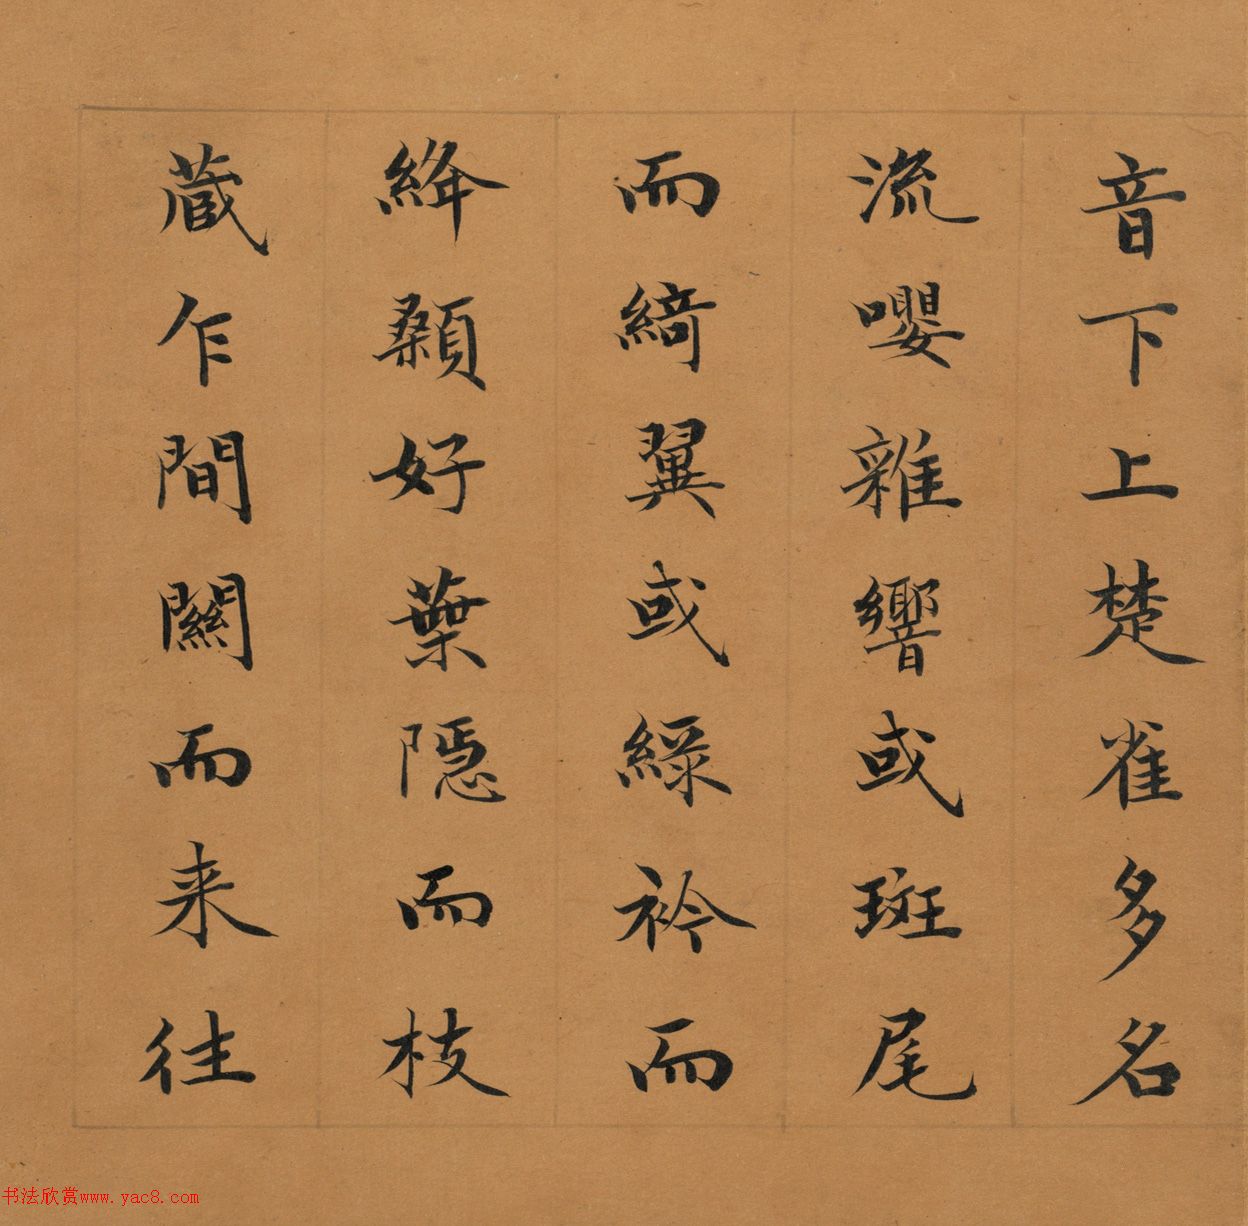 音下上楚雀多名
流嚶雜響或斑尾
而綺翼或綠衿而
絳顙好葉隱而枝
蔵乍間關而来往
书法欣赏www.yac8.com